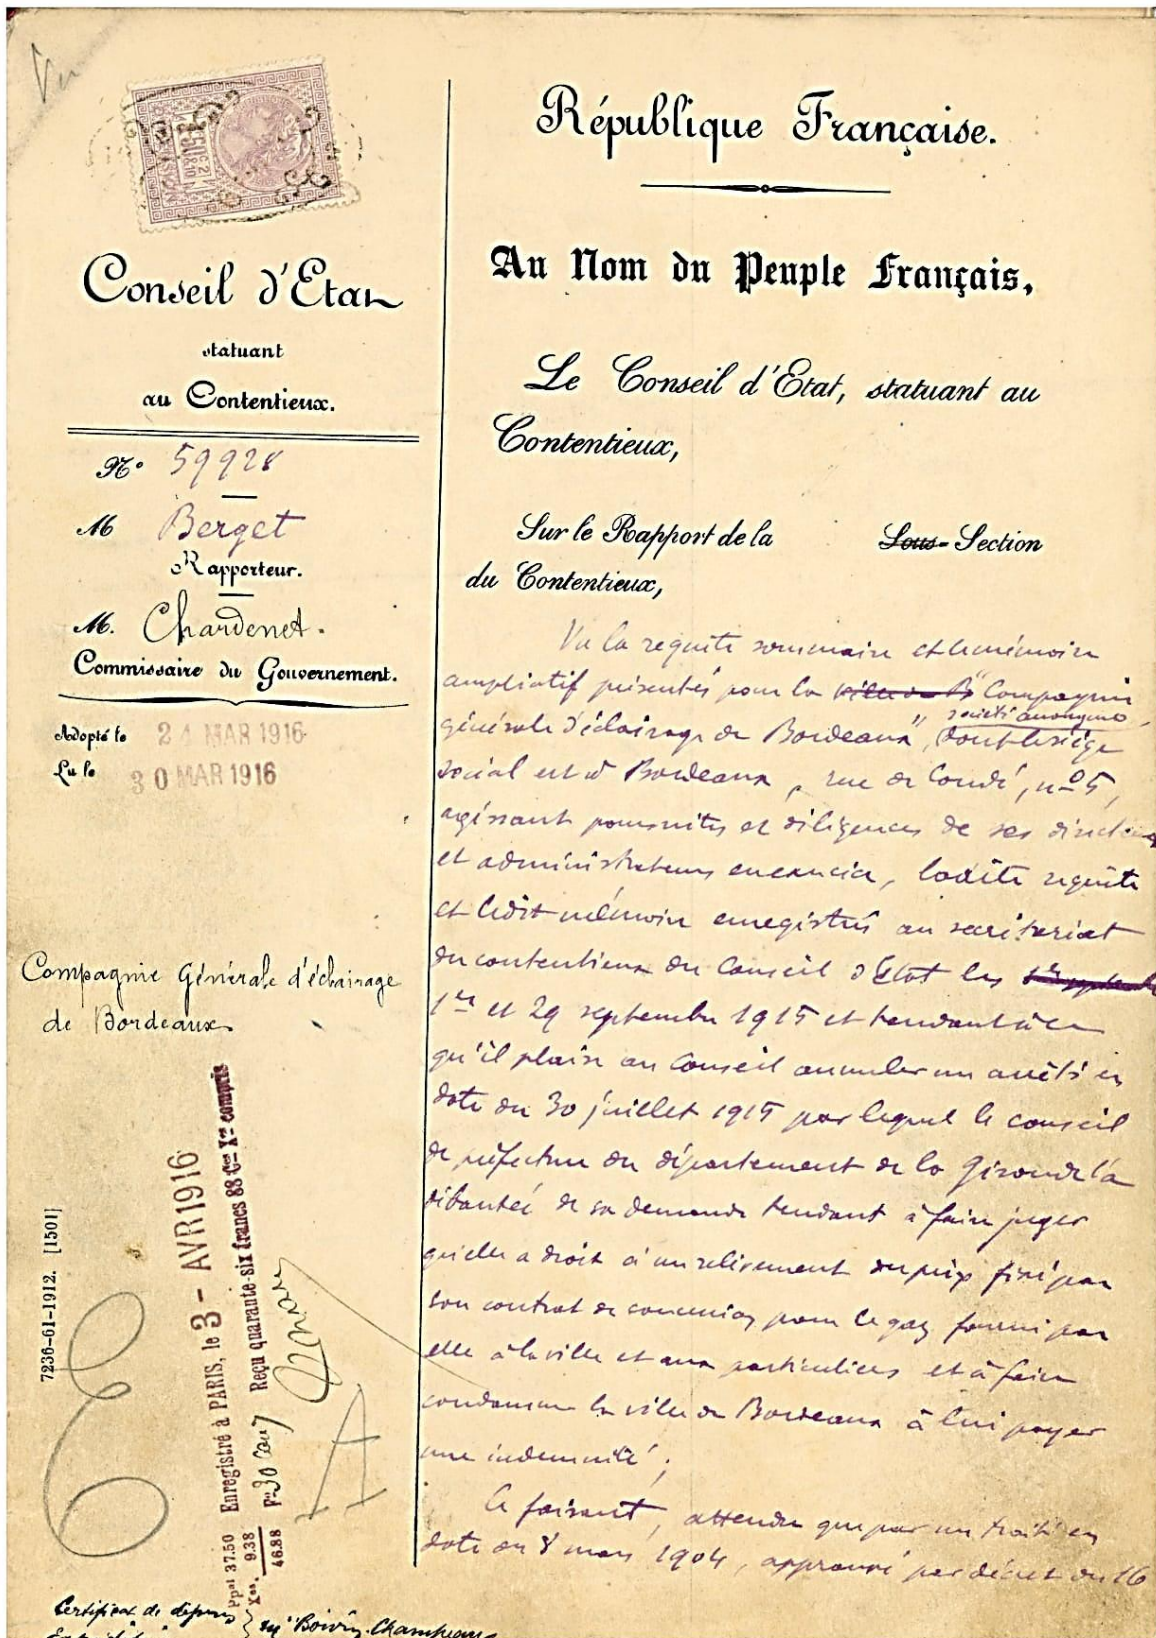 Vu
Conseil d'Etat
statuant
au Contentieux.
N° 59928
M Berget
Rapporteur.
M. Chardenet.
Commissaire du Gouvernement.
Adopté le 24 MAR 1916
Lu le 30 MAR 1916
Compagnie Générale d'éclairage
de Bordeaux
7236-61-1912. [1501]
Enregistré à PARIS, le 3 - AVR 1916
Reçu quarante-six francs 88 Ces Xes compris
Ppal 37.50
Xes. 9.38
46.88
Certificat de dépens
Me Boivin-Champeaux
République Française.
Au Nom du Peuple Français,
Le Conseil d'Etat, statuant au
Contentieux,
Sur le Rapport de la Sous-Section
du Contentieux,
Vu la requête sommaire et le mémoire
ampliatif présentés pour la "Compagnie
générale d'éclairage de Bordeaux", société anonyme, dont le siège
social est à Bordeaux, rue de Condé, n° 5,
agissant poursuites et diligences de ses directeurs
et administrateurs en exercice, ladite requête
et ledit mémoire enregistrés au secrétariat
du contentieux du Conseil d'Etat les
1er et 29 septembre 1915 et tendant à ce
qu'il plaise au Conseil annuler un arrêté en
date du 30 juillet 1915 par lequel le conseil
de préfecture du département de la Gironde l'a
déboutée de sa demande tendant à faire juger
qu'elle a droit à un relèvement du prix fixé par
son contrat de concession pour le gaz fourni par
elle à la ville et aux particuliers et à faire
condamner la ville de Bordeaux à lui payer
une indemnité;
Ce faisant, attendu que par un traité en
date du 8 mars 1904, approuvé par décret du 16